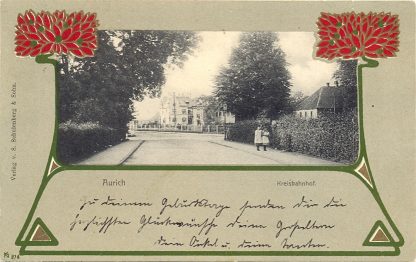 Verlag v. S. Schulenberg & Sohn.
Aurich
Kreisbahnhof.
Zu deinem Geburtstage senden dir die
herzlichsten Glückwünsche deine Gespielen
dein Onkel u. deine Tanten.